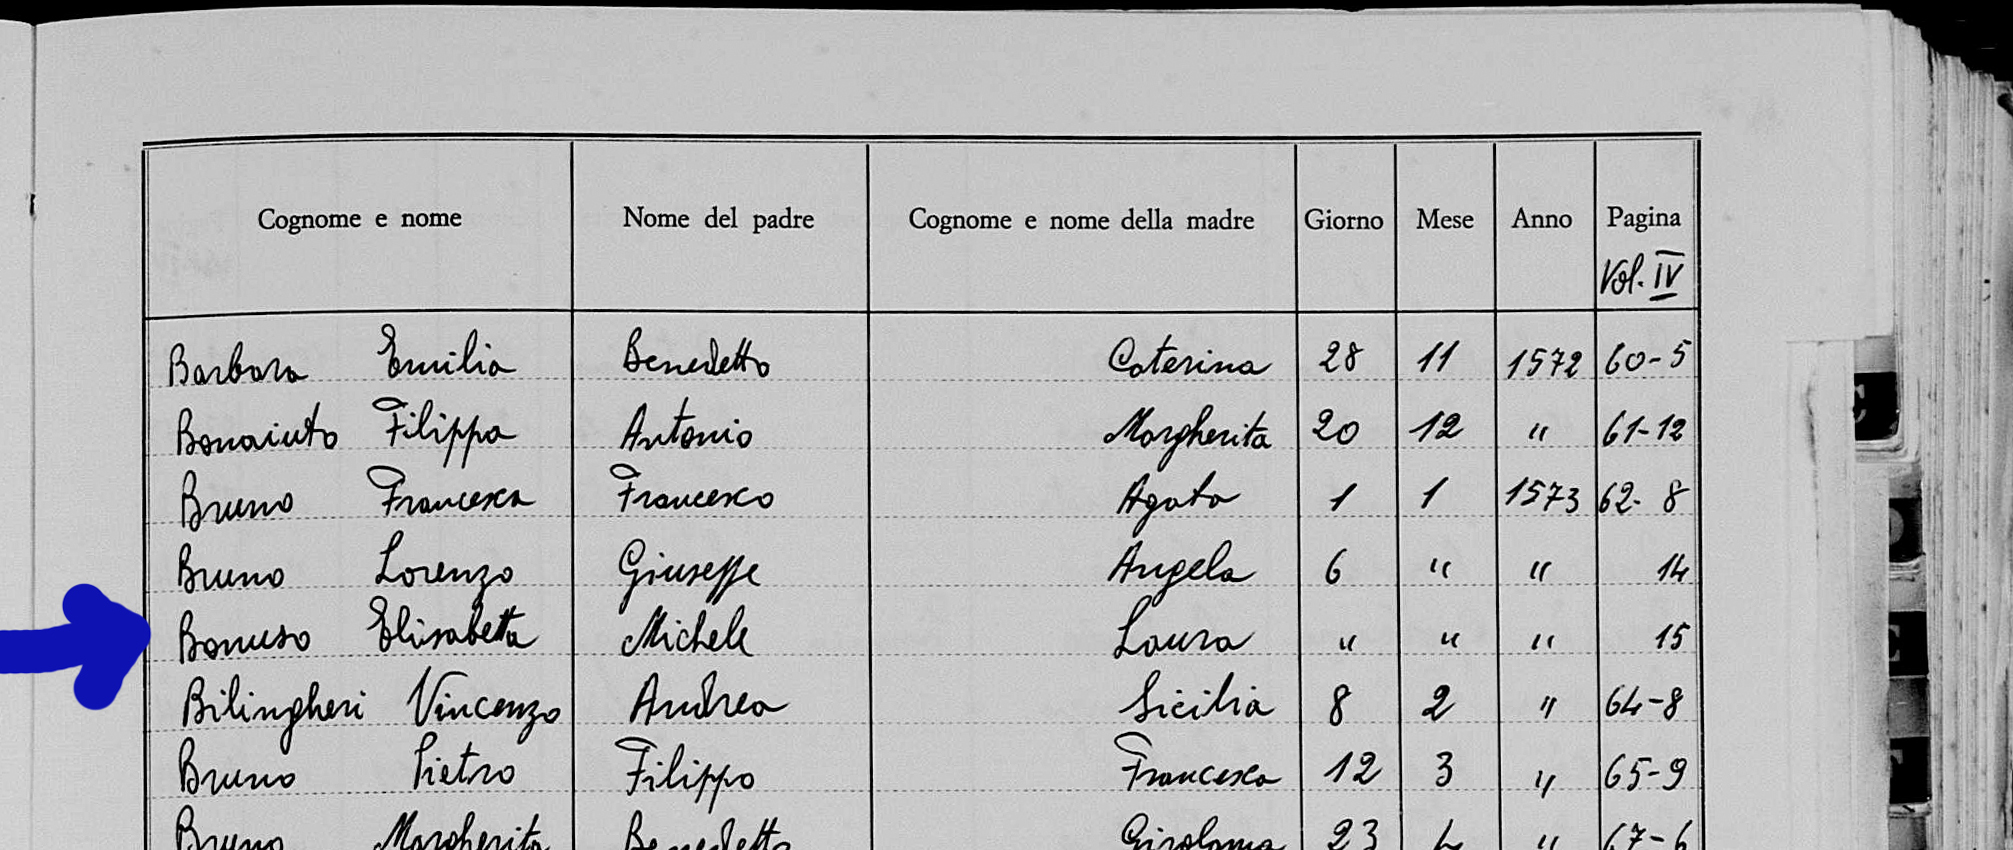 Cognome e nome Nome del padre Cognome e nome della madre Giorno Mese Anno Pagina
Vol. IV
Barbara Emilia Benedetto Caterina 28 11 1572 60-5
Bonaiuto Filippa Antonio Margherita 20 12 " 61-12
Bruno Francesca Francesco Agata 1 1 1573 62-8
Bruno Lorenzo Giuseppe Angela 6 " " 14
Bonuso Elisabetta Michele Laura " " " 15
Bilingheri Vincenzo Andrea Sicilia 8 2 " 64-8
Bruno Pietro Filippo Francesca 12 3 " 65-9
Bruno Margherita Benedetto Girolama 23 4 " 67-6